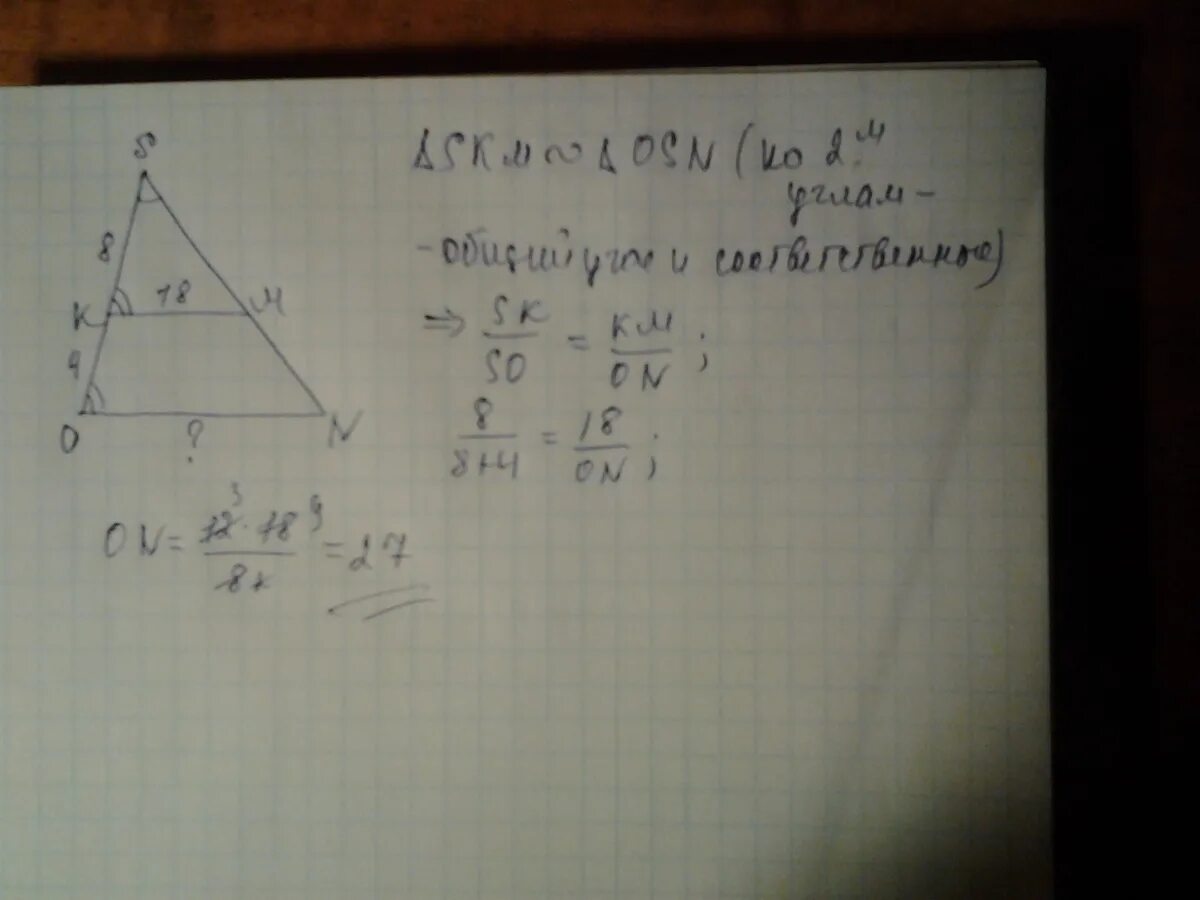 S
8
K 18 M
4
O ? N
ΔSKM ∾ ΔOSN (по 2м
углам -
- общий угол и соответственные)
⇒ SK/SO = KM/ON ;
8/8+4 = 18/ON ;
ON = 12 3 · 18 9 / 8 = 27